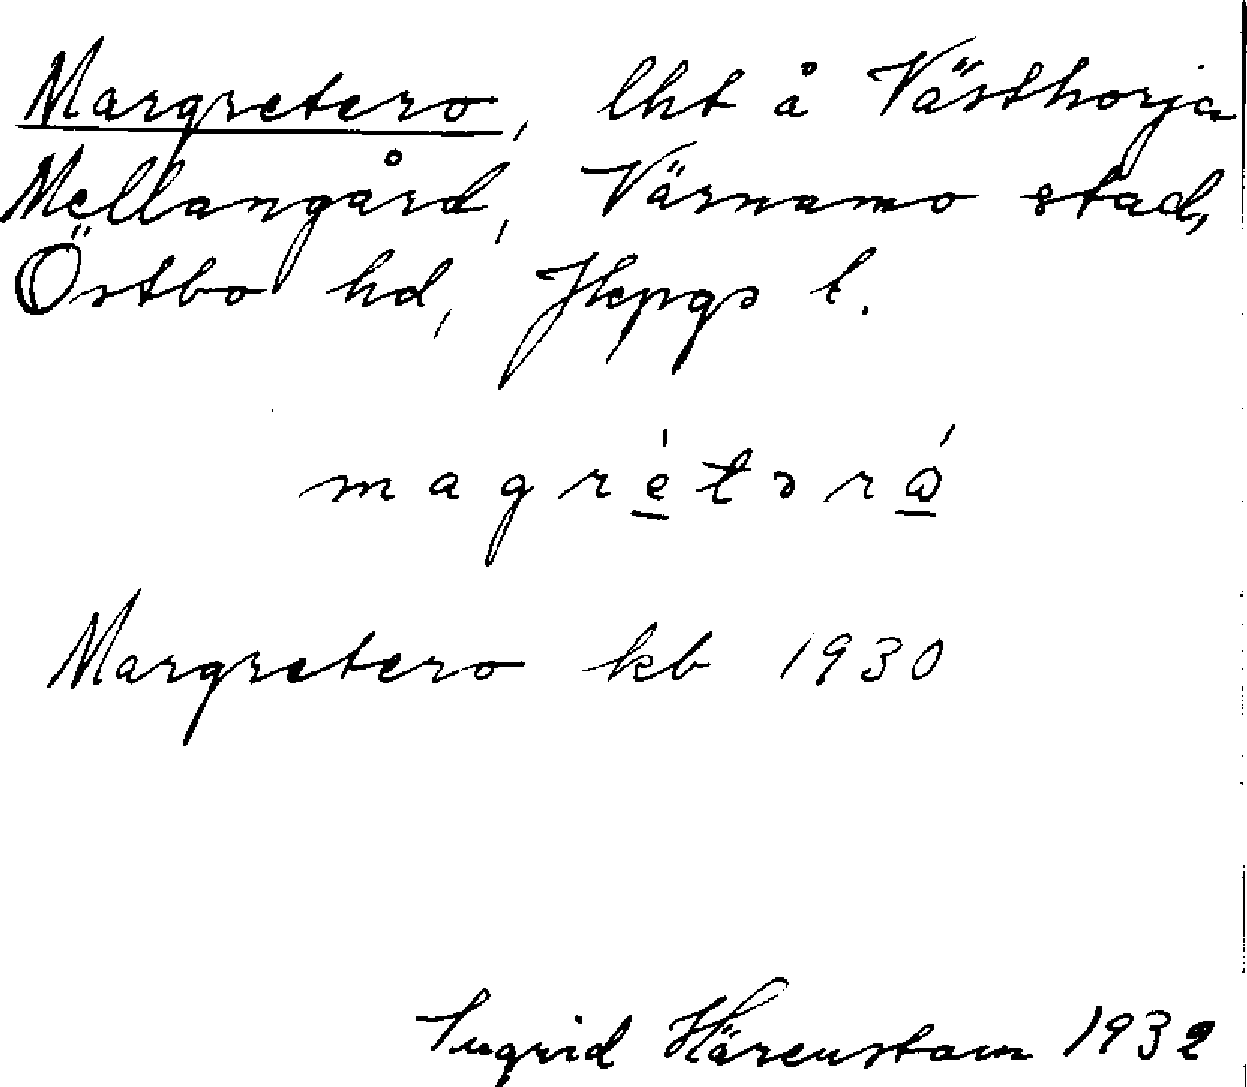 Margretero, lht å Västhorja
Mellangård, Värnamo stad,
Östbo hd, Jkpgs l.
magrétəró̱
Margretero kb 1930
Ingrid Härenstam 1932